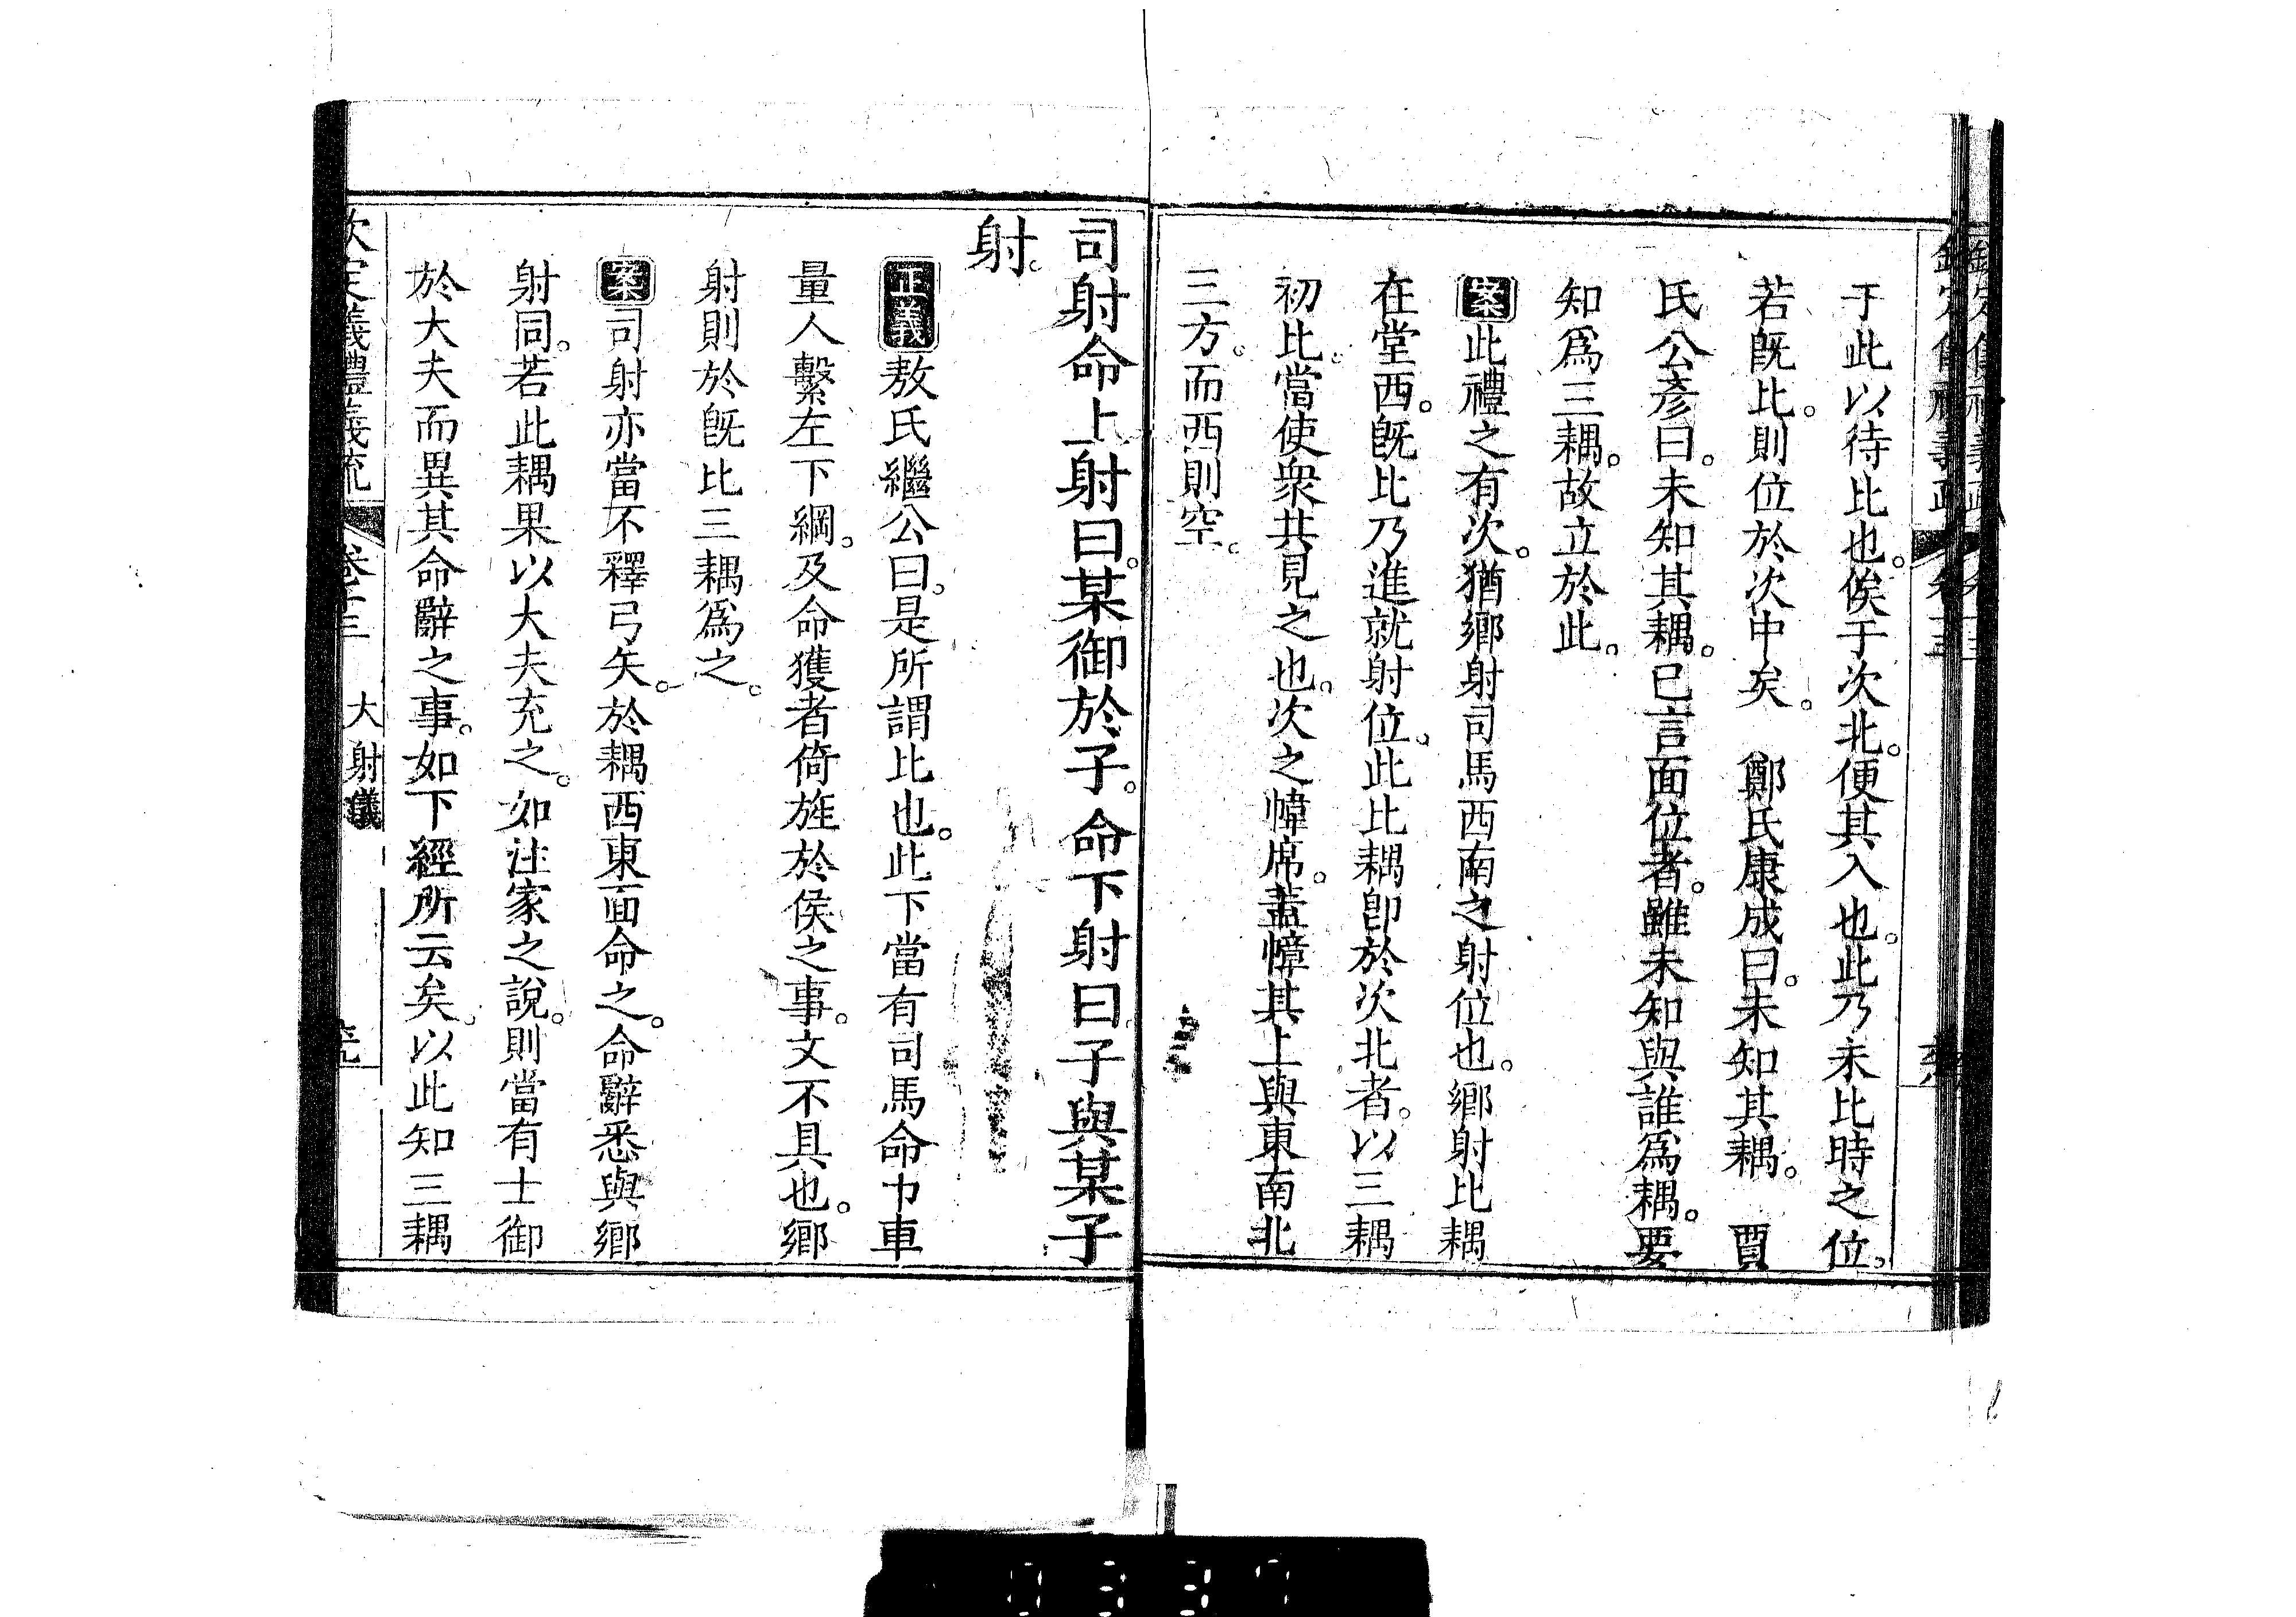 于此以待比也。俟于次北。便其入也。此乃未比時之位。
若旣比。則位於次中矣。　鄭氏康成曰。未知其耦。　賈
氏公彥曰。未知其耦。已言面位者。雖未知與誰爲耦。要
知爲三耦。故立於此。
案此禮之有次。猶鄉射司馬西南之射位也。鄉射比耦
在堂西。旣比乃進就射位。此比耦卽於次北者。以三耦
初比。當使衆共見之也。次之幃席。蓋幛其上與東南北
三方。而西則空。
司射命上射曰。某御於子。命下射曰。子與某子
射。
正義敖氏繼公曰。是所謂比也。此下當有司馬命巾車
量人繫左下綱。及命獲者倚旌於侯之事。文不具也。鄉
射則於旣比三耦爲之。
案司射亦當不釋弓矢。於耦西東面命之。命辭悉與鄉
射同。若此耦果以大夫充之。如注家之說。則當有士御
於大夫而異其命辭之事。如下經所云矣。以此知三耦
欽定義禮義疏　卷十三　大射儀
0337